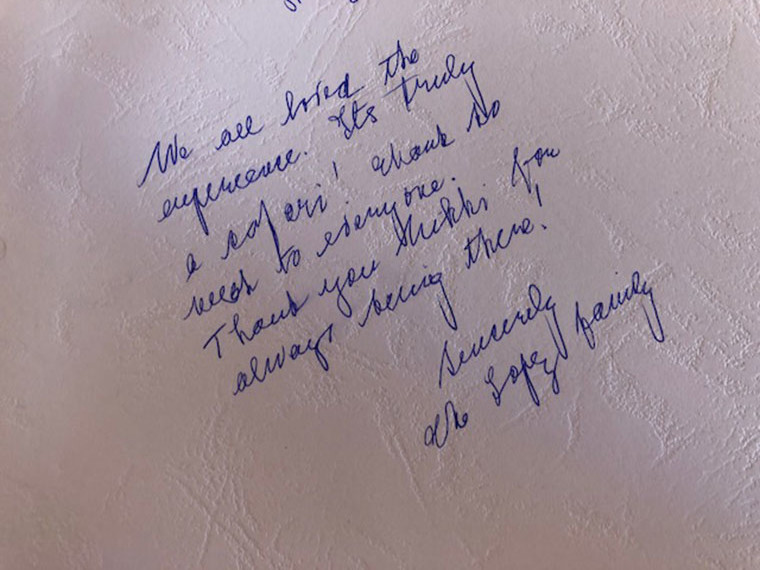 We all loved the
experience. Its truly
a safari! Thank so
much to everyone.
Thank you for
always being there!
Sincerely
The Lopez family